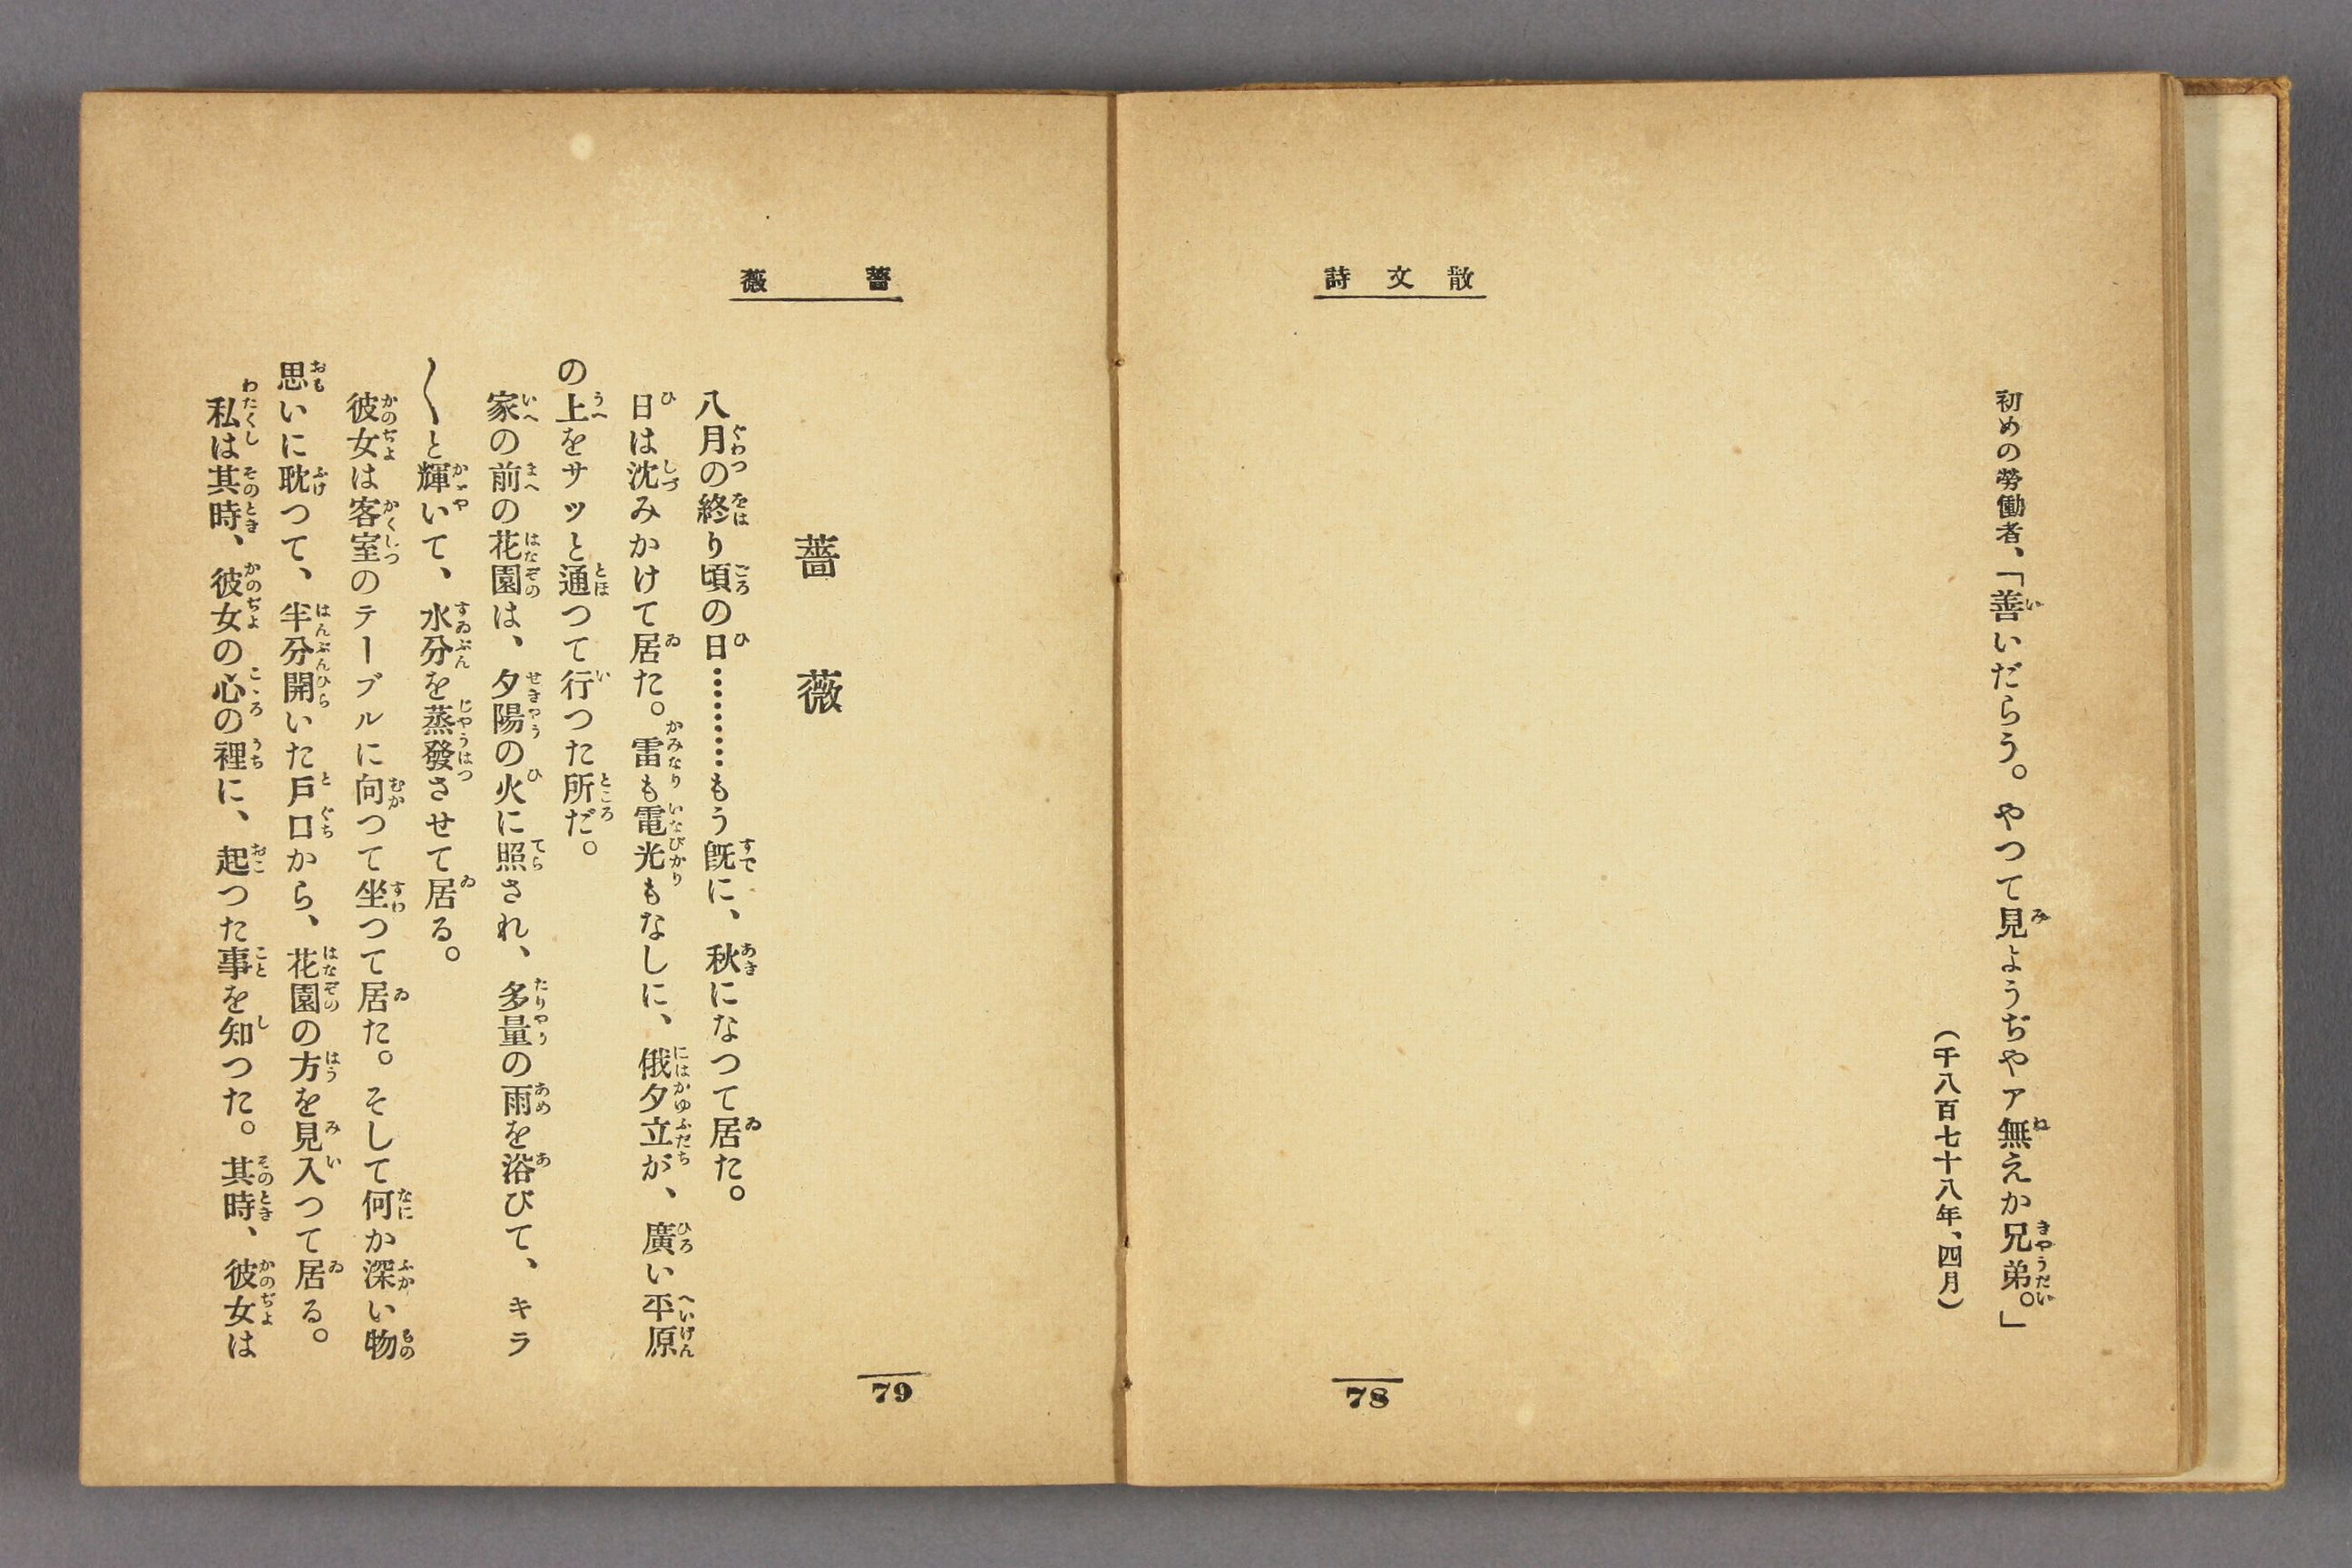 散文詩
初めの勞働者、「善いだらう。やつて見ようぢやア無えか兄弟。」
(千八百七十八年、四月)
78
薔薇
薔薇
八月の終り頃の日………もう既に、秋になつて居た。
日は沈みかけて居た。雷も電光もなしに、俄夕立が、廣い平原
の上をサッと通つて行つた所だ。
家の前の花園は、夕陽の火に照され、多量の雨を浴びて、キラ
〱と輝いて、水分を蒸發させて居る。
彼女は客室のテーブルに向つて坐つて居た。そして何か深い物
思いに耽つて、半分開いた戸口から、花園の方を見入つて居る。
私は其時、彼女の心の裡に、起つた事を知つた。其時、彼女は
79